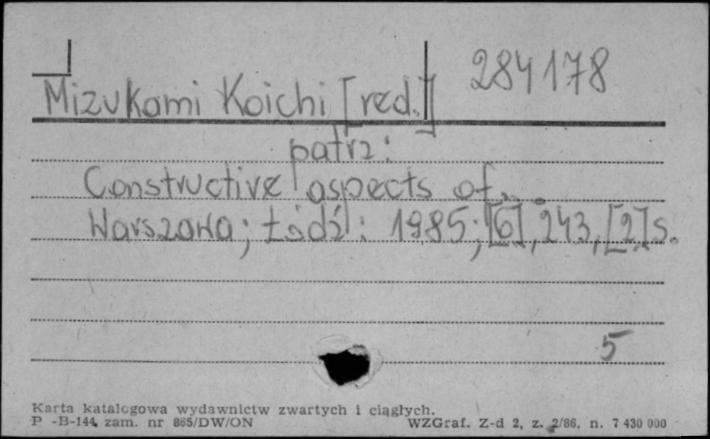 284178
Mizukami Koichi [red.]
patrz:
Constructive aspects of...
Warszawa; Łódź: 1985; [6], 243, [2] s.
5
Karta katalogowa wydawnictw zwartych i ciągłych.
P -B-144, zam. nr 865/DW/ON WZGraf. Z-d 2, z. 2/86, n. 7 430 000